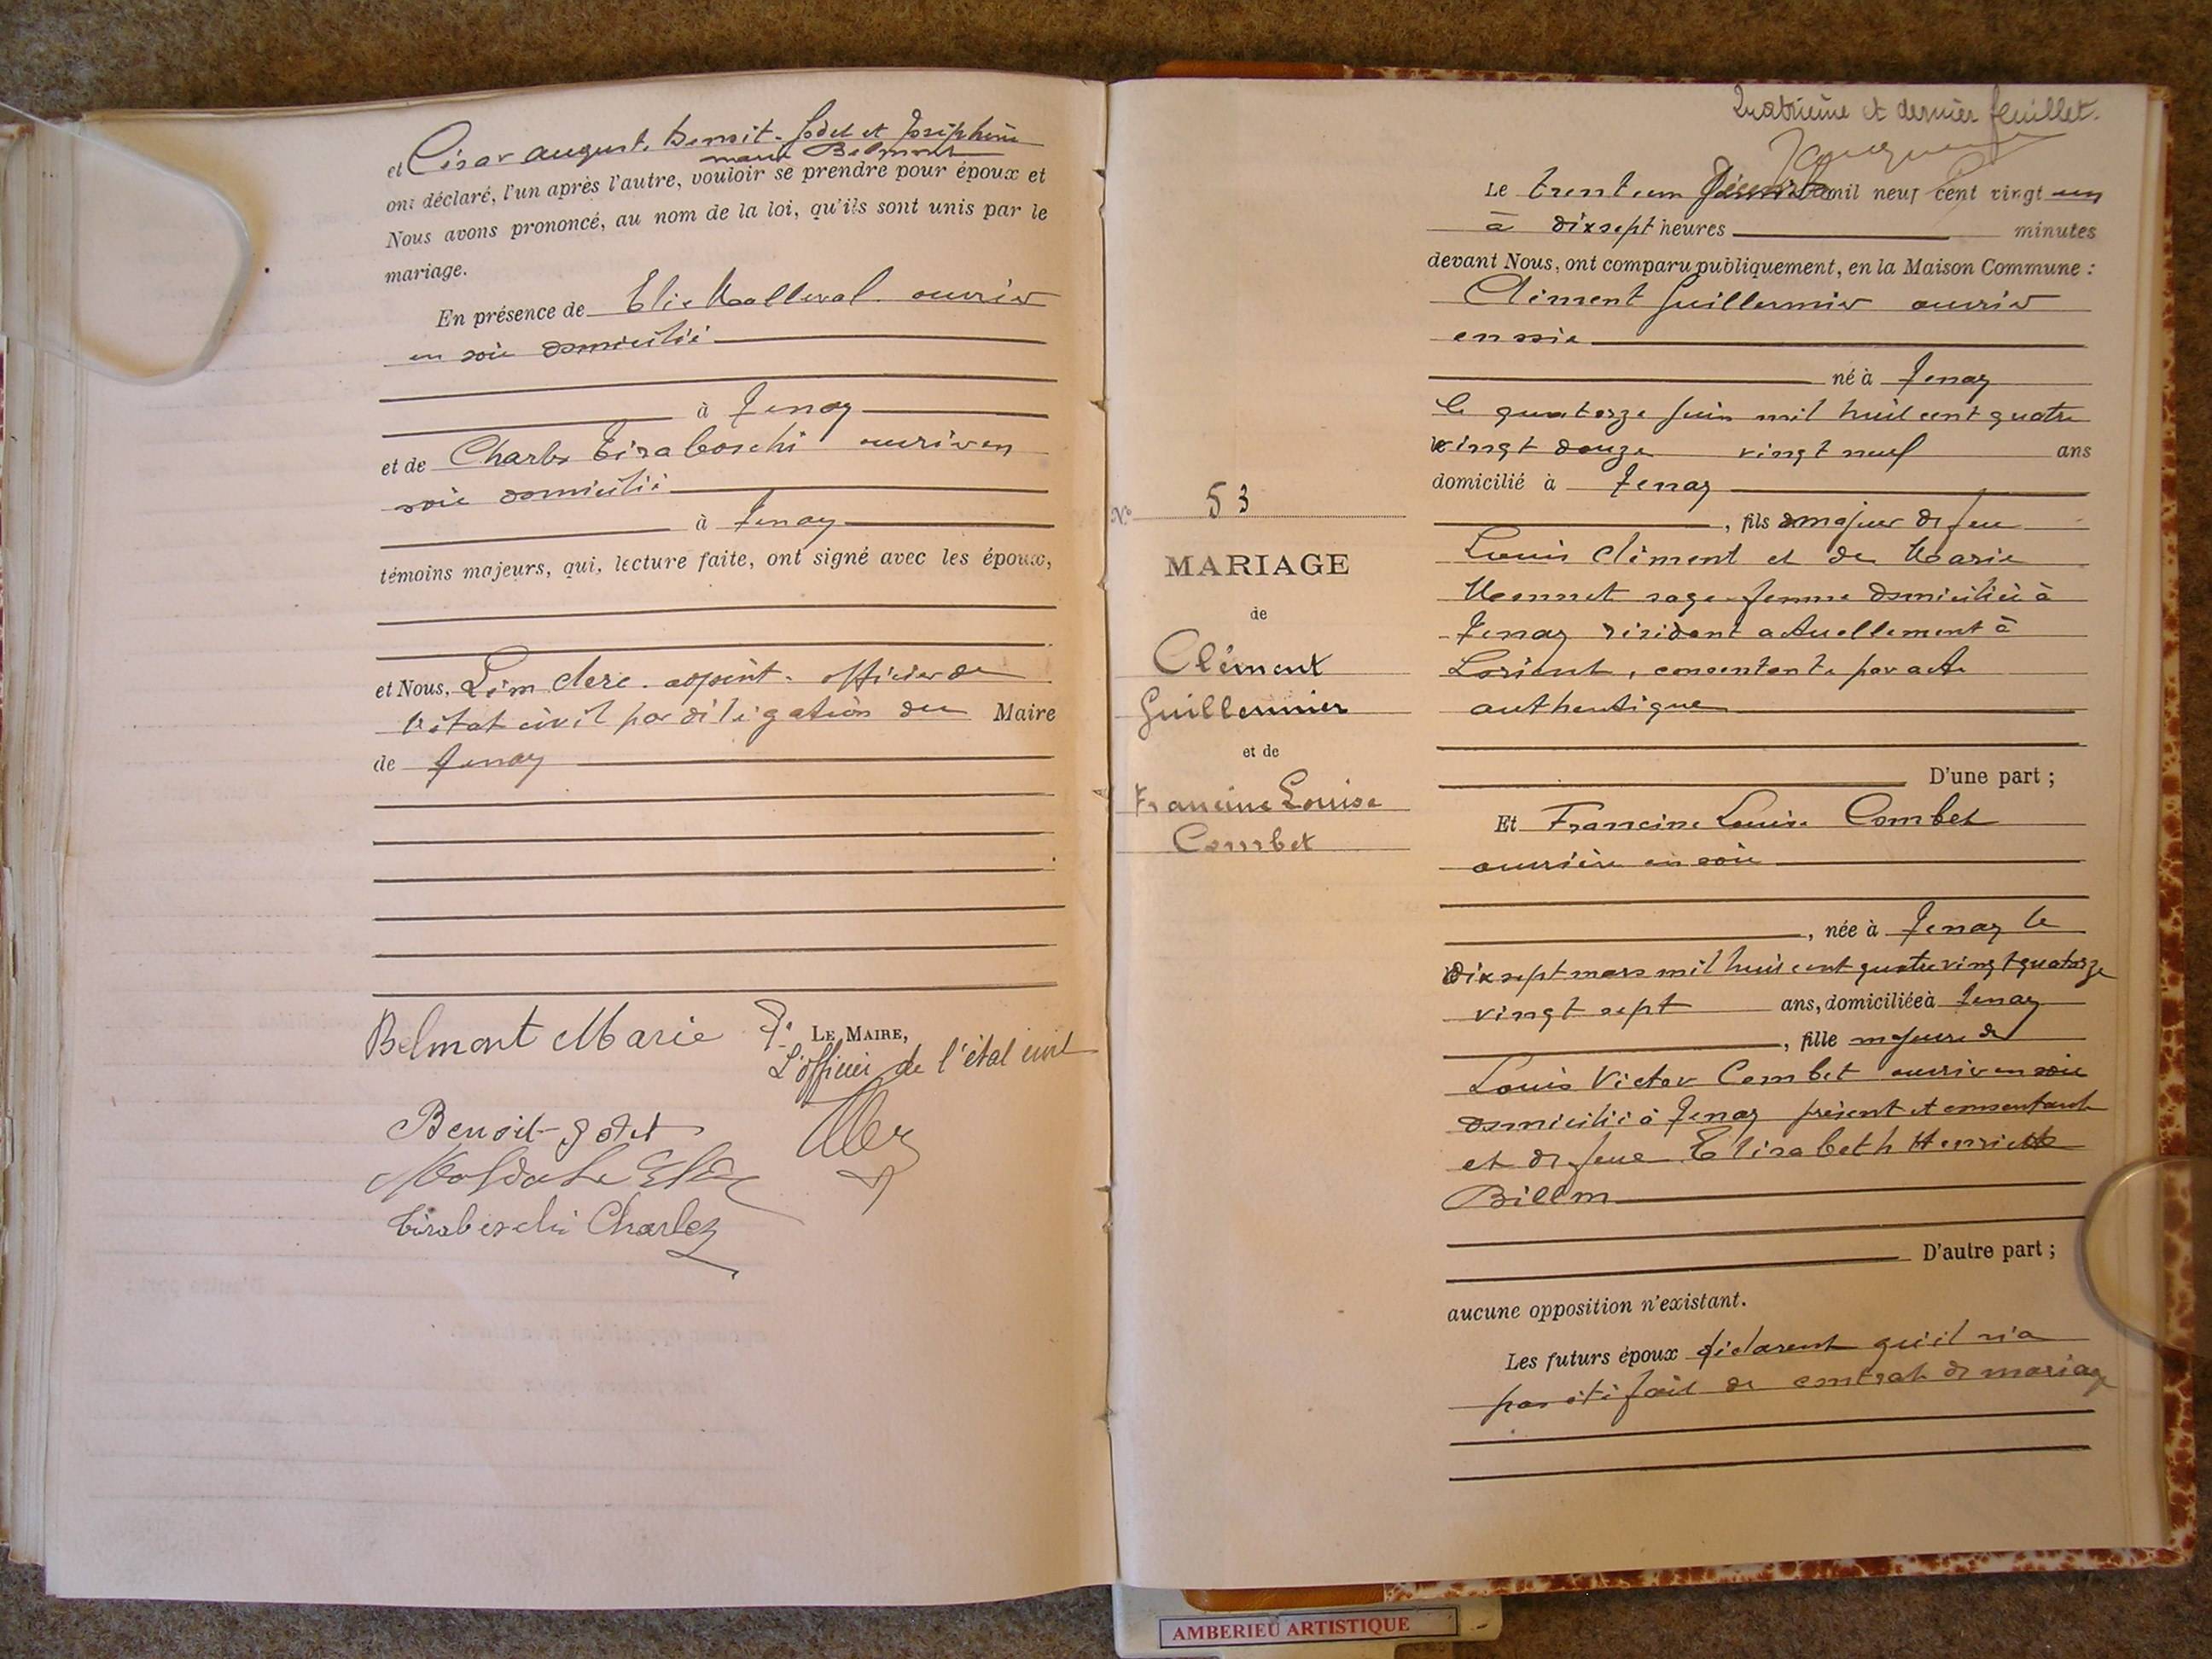 et César August. Benoit-Godet et Joséphine
marie Belmont
ont déclaré, l'un après l'autre, vouloir se prendre pour époux et
Nous avons prononcé, au nom de la loi, qu'ils sont unis par le
mariage.
En présence de Elie ouvrier
en soie domicilié
à Tenay
et de Charles Tiraboschi ouvrier en
soie domicilié
à Tenay
témoins majeurs, qui, lecture faite, ont signé avec les époux,
et Nous, clerc adjoint officier de
l'état civil par délégation du Maire
de Tenay
Belmont Marie
Pr LE MAIRE,
L'officier de l'état civil
Benoit-Godet
Tiraboschi Charles
Quatrième et dernier feuillet.
Le trente un Décembre mil neuf cent vingt un
à dix sept heures minutes
devant Nous, ont comparu publiquement, en la Maison Commune :
Clément Guillermier ouvrier
en soie
né à Tenay
le quatorze juin mil huit cent quatre
vingt douze vingt neuf ans
domicilié à Tenay
, fils majeur de feu
Louis Clément et de Marie
Monnet sage-femme domiciliée à
Tenay résidant actuellement à
Lorient, consentante par acte
authentique
D'une part ;
No 53
MARIAGE
de
Clément
Guillermier
et de
Francine Louise
Combet
Et Francine Louise Combet
ouvrière en soie
, née à Tenay le
dix sept mars mil huit cent quatre vingt quatorze
vingt sept ans, domiciliée à Tenay
, fille majeure de
Louis Victor Combet ouvrier en soie
domicilié à Tenay présent et consentant
et de feue Elisabeth Henriette
Billon
D'autre part ;
aucune opposition n'existant.
Les futurs époux déclarent qu'il n'a
pas été fait de contrat de mariage
AMBERIEU ARTISTIQUE